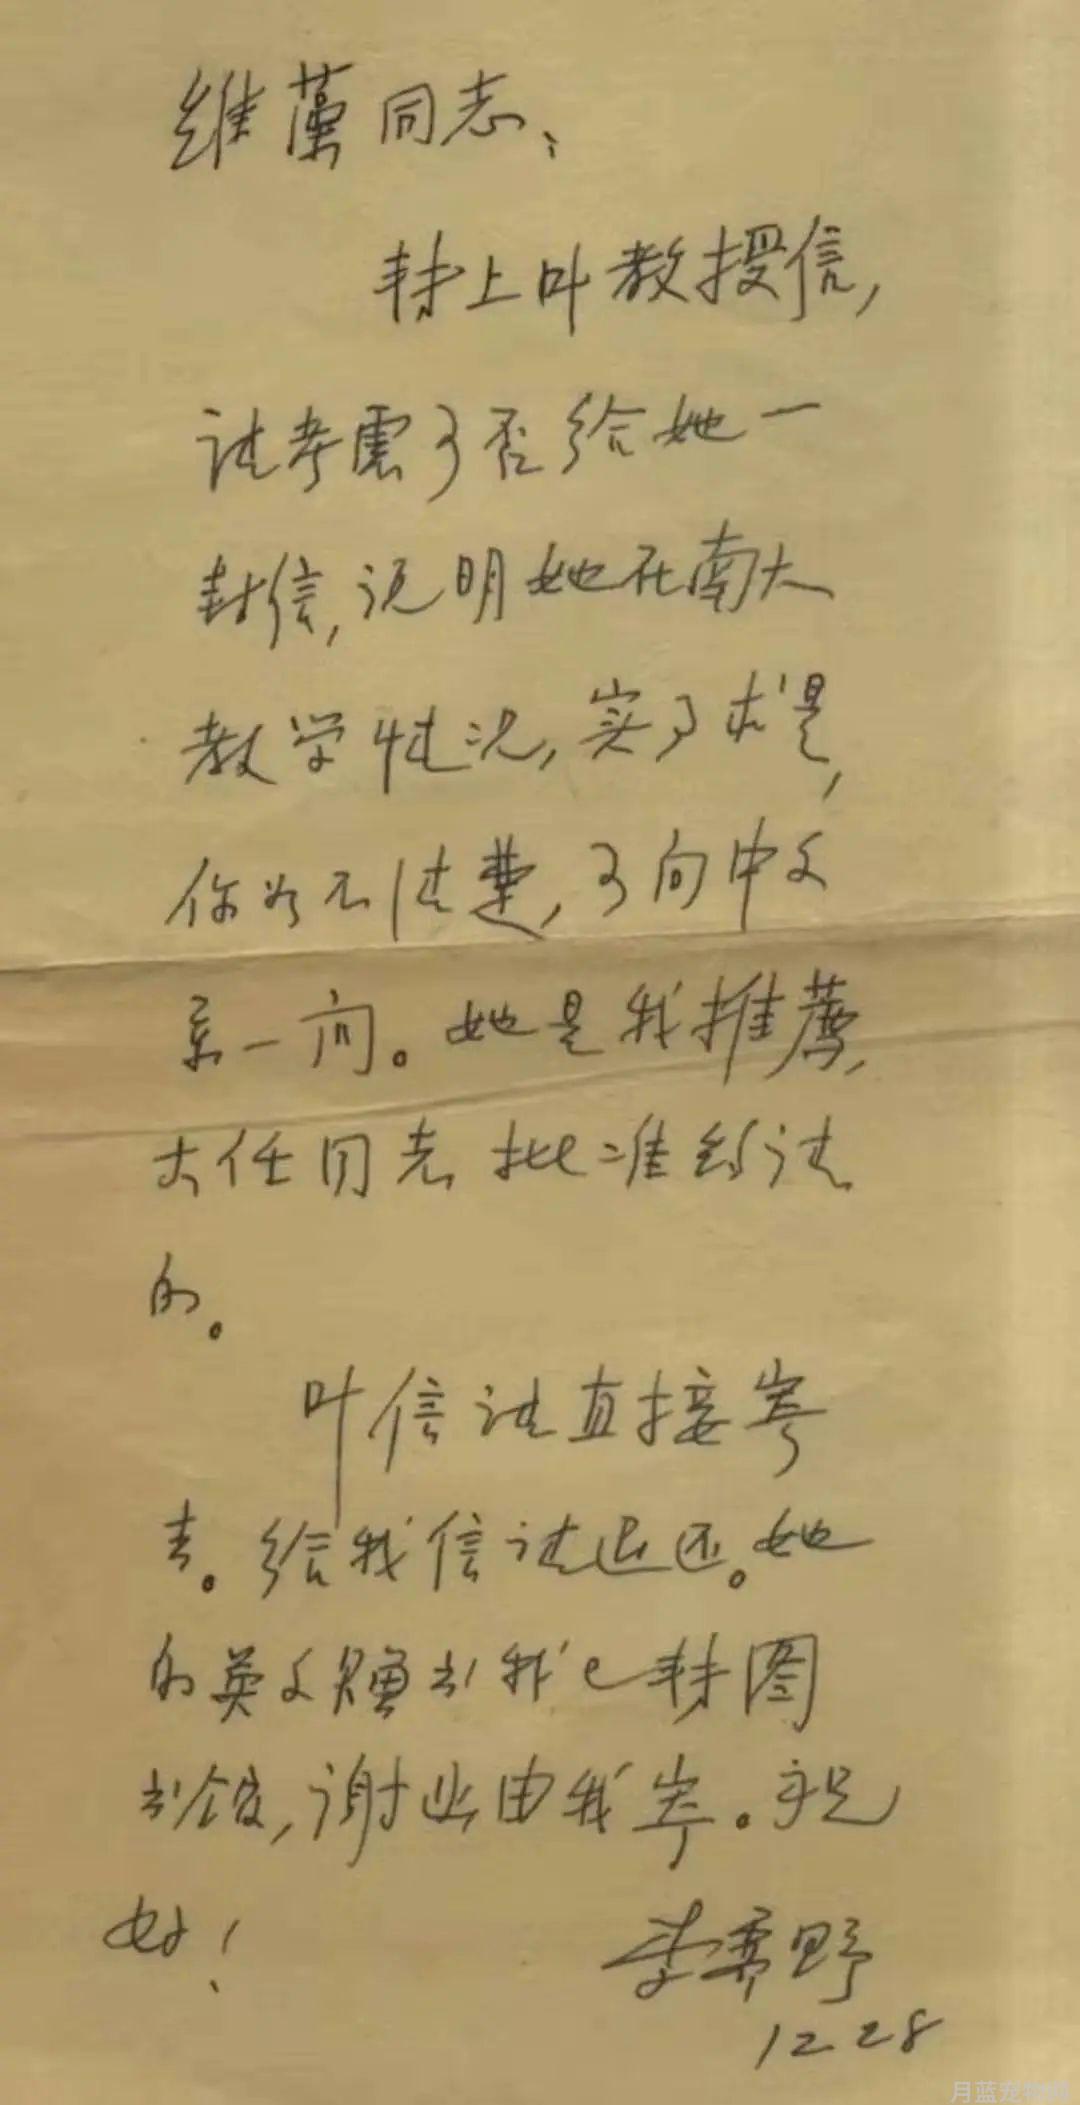 维藻同志：
转上叶教授信，
请考虑可否给她一
封信，说明她在南大
教学情况，实事求是，
你如不清楚，可向中文
系一问。她是我推荐，
大任同志批准约请
的。
叶信请直接寄
去。给我信请退还。她
的英文赠书我已转图
书馆，谢函由我寄。祝
好！
李霁野
12 28
月蓝宠物网